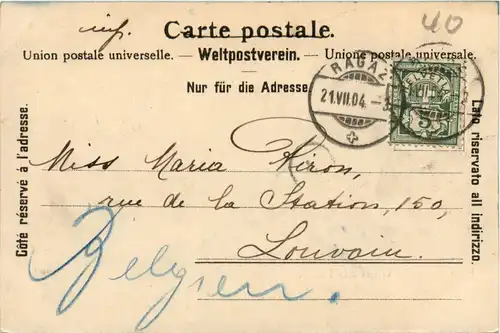 40
Carte postale.
Union postale universelle. — Weltpostverein. — Unione postale universale.
Nur für die Adresse
RAGAZ
21.VII.04.
HELVETIA
5
Côté réservé à l'adresse.
Lato riservato all indirizzo.
Miss Maria Kiron,
rue de la Station, 150,
Louvain.
Belgien.